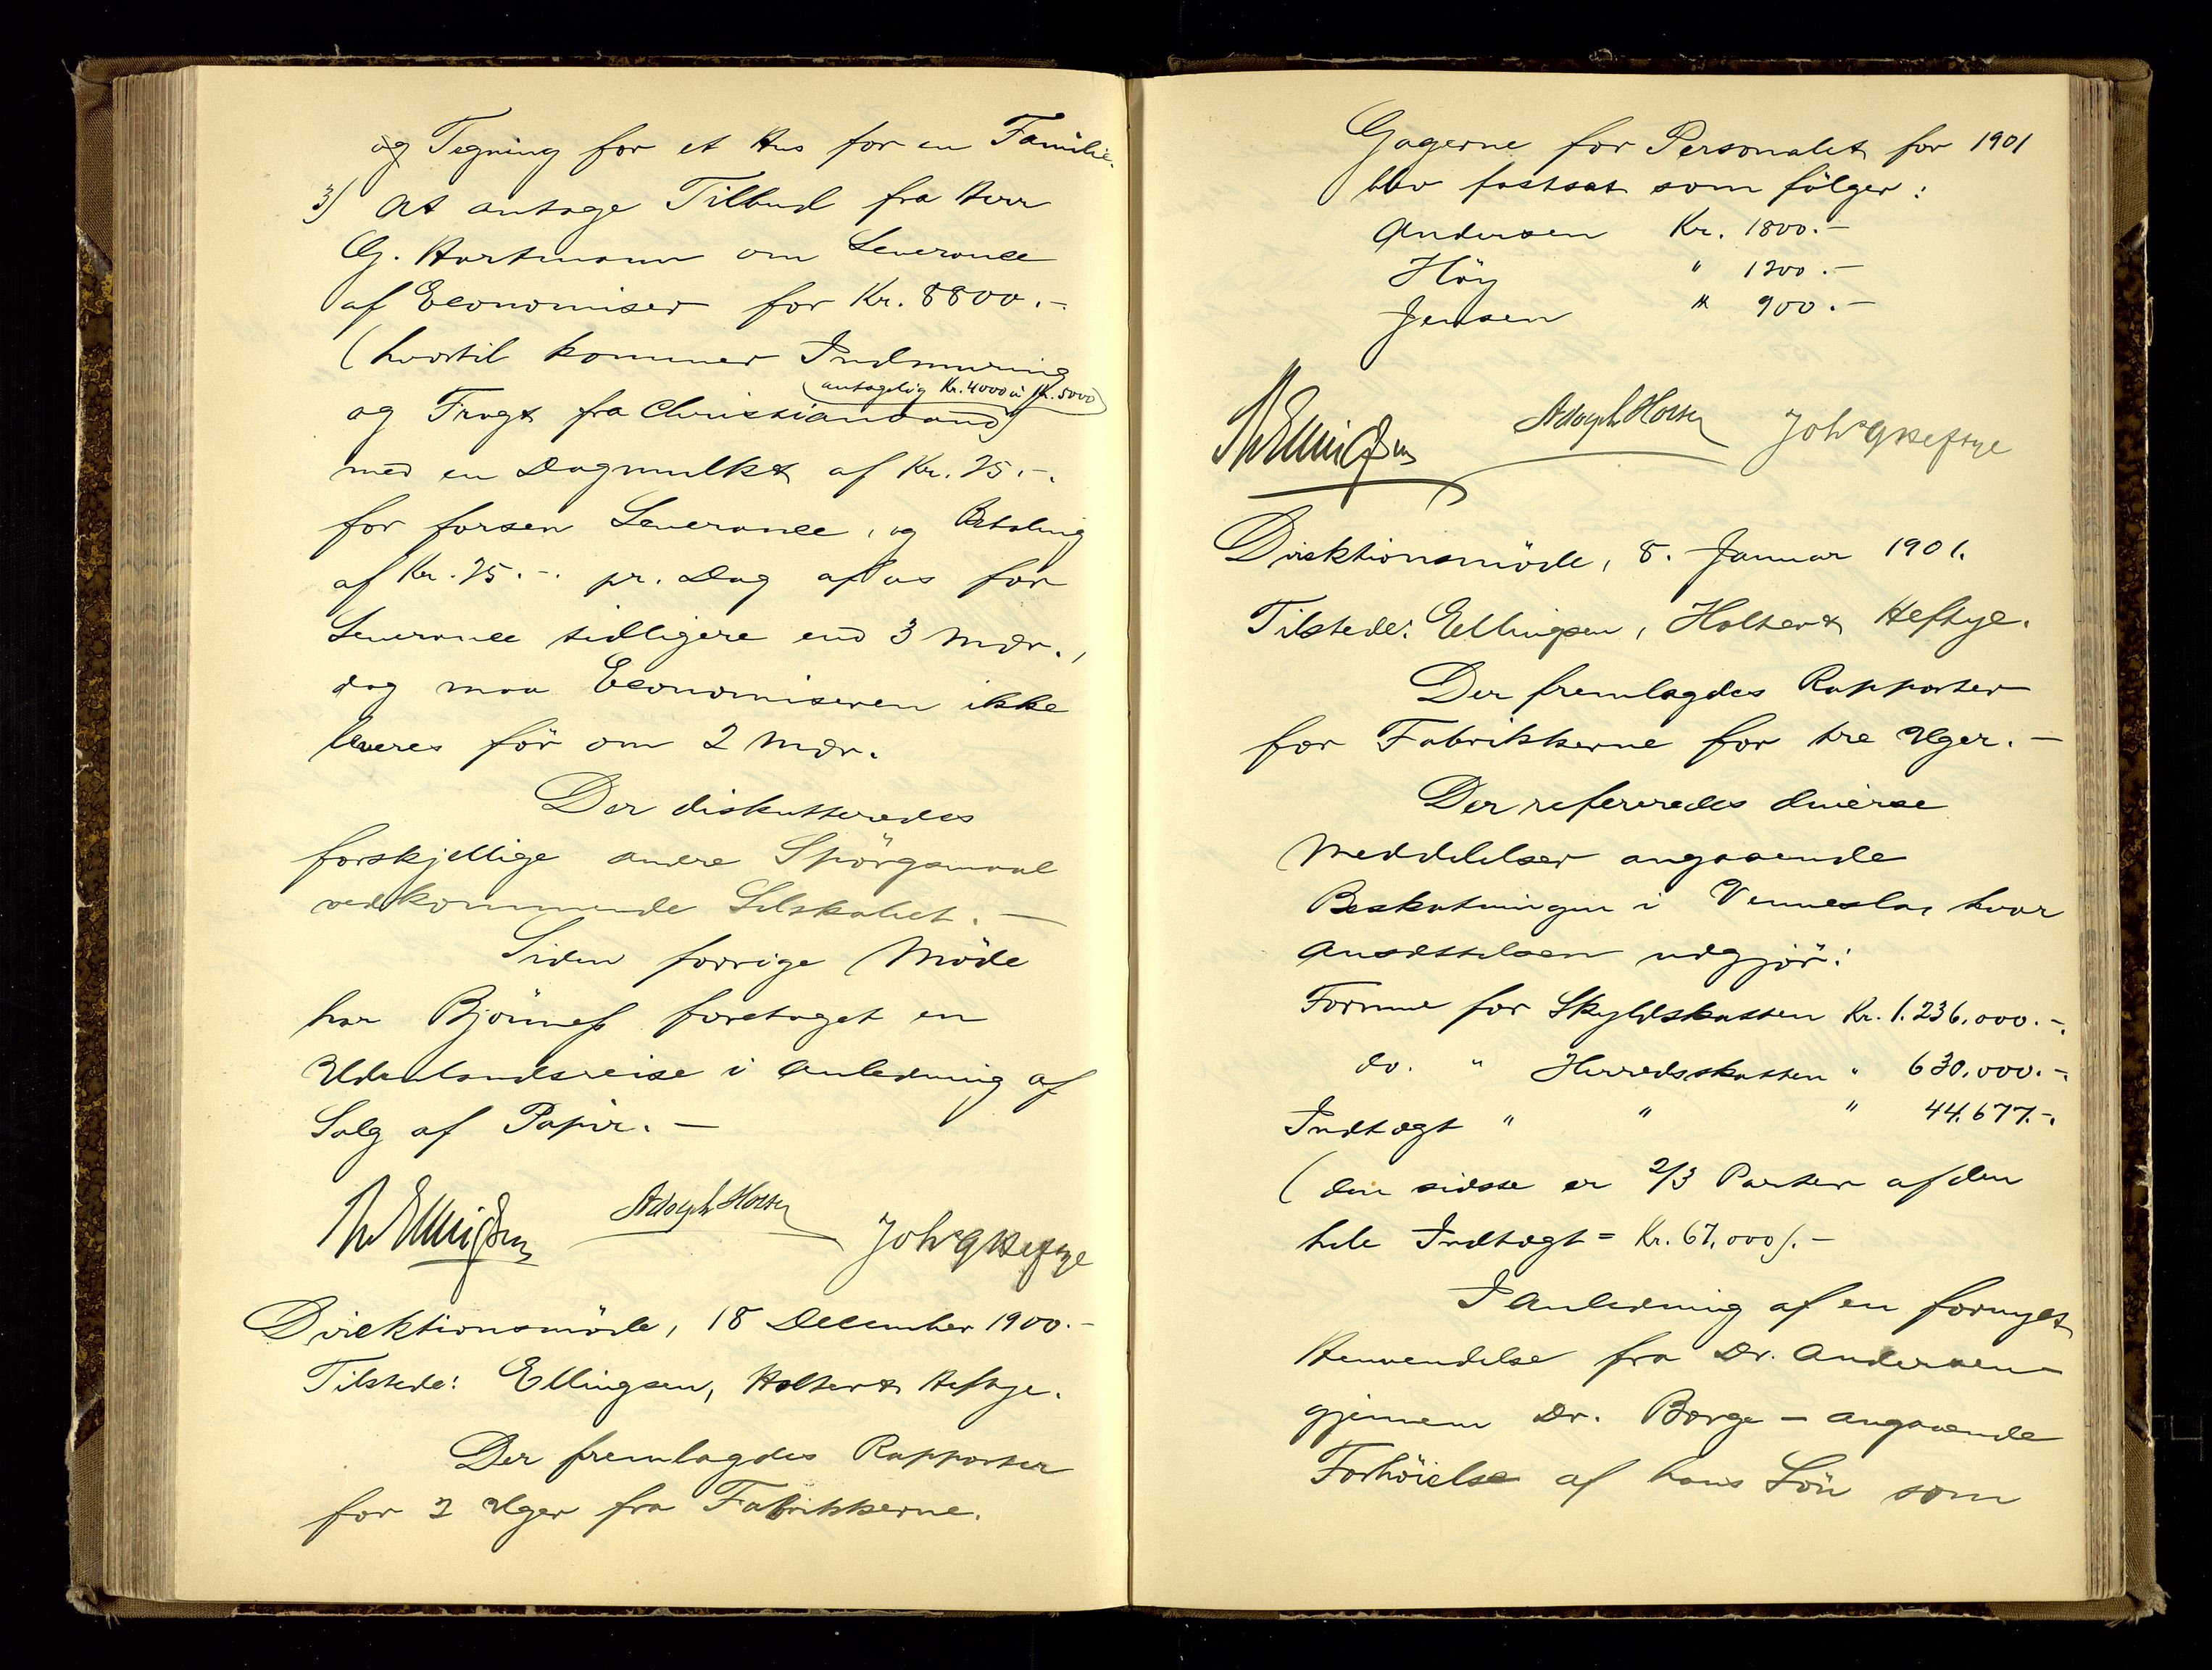 og Tegning for et Hus for en Familie.
3) At antage Tilbud fra Herr
G. Hartmann om Leverance
af Economiser for Kr. 8800.-
(hvortil kommer Indmuring
(antagelig Kr. 4000 à Kr. 5000)
og Fragt fra Christianssand)
med en Dagmulkt af Kr. 25.-.
for forsen Leverance, og Betaling
af Kr. 25.-. pr. Dag af os for
Leverance tidligere end 3 Mdr.,
dog maa Economiseren ikke
leveres för om 2 Mdr.
Der diskutteredes
forskjellige andre Spörgsmaal
vedkommende Selskabet. —
Siden forrige Möde
har Björness foretaget en
Udenlandsreise i Anledning af
Salg af Papir. —
Th Ellingsen Adolph Holter Joh's G Heftye
Direktionsmöde, 18 December 1900.-
Tilstede: Ellingsen, Holter & Heftye.
Der fremlagdes Rapporter
for 2 Uger fra Fabrikkerne.
Gagerne for Personalet for 1901
blev fastsat som fölger:
Andersen Kr. 1800.-
Höy " 1200.-
Jensen " 900.-
Th Ellingsen Adolph Holter Joh's G Heftye
Direktionsmöde, 8. Januar 1901.
Tilstede: Ellingsen, Holter & Heftye.
Der fremlagdes Rapporter
for Fabrikkerne for tre Uger. —
Der refereredes diverse
Meddelelser angaaende
Beskatningen i Vennesla, hvor
Ansættelsen udgjör:
Formue for Skyldskatten Kr. 1.236.000.-.
do. " Herredsskatten " 630.000.-.
Indtægt " " " 44.677.-.
(den sidste er 2/3 Parter af den
hele Indtægt = Kr. 67.000). -
I Anledning af en fornyet
Henvendelse fra Dr. Andersen
gjennem Dr. Borge - angaaende
Forhöielse af hans Lön som